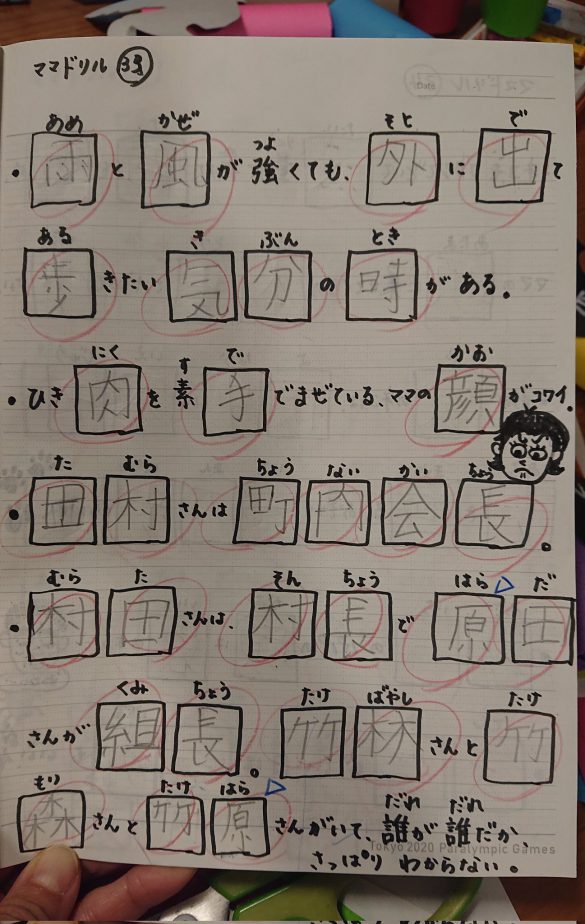 ママドリル 33
あめ かぜ つよ そと で
・雨と風が強くても、外に出て
ある き ぶん とき
歩きたい気分の時がある。
にく す で かお
・ひき肉を素手でまぜている、ママの顔がコワイ。
た むら ちょう ない かい ちょう
・田村さんは町内会長。
むら た そん ちょう はら だ
・村田さんは、村長で原田
くみ ちょう たけ ばやし たけ
さんが組長。竹林さんと竹
もり たけ はら だれ だれ
森さんと竹原さんがいて、誰が誰だか、
Tokyo 2020 Paralympic Games
さっぱりわからない。